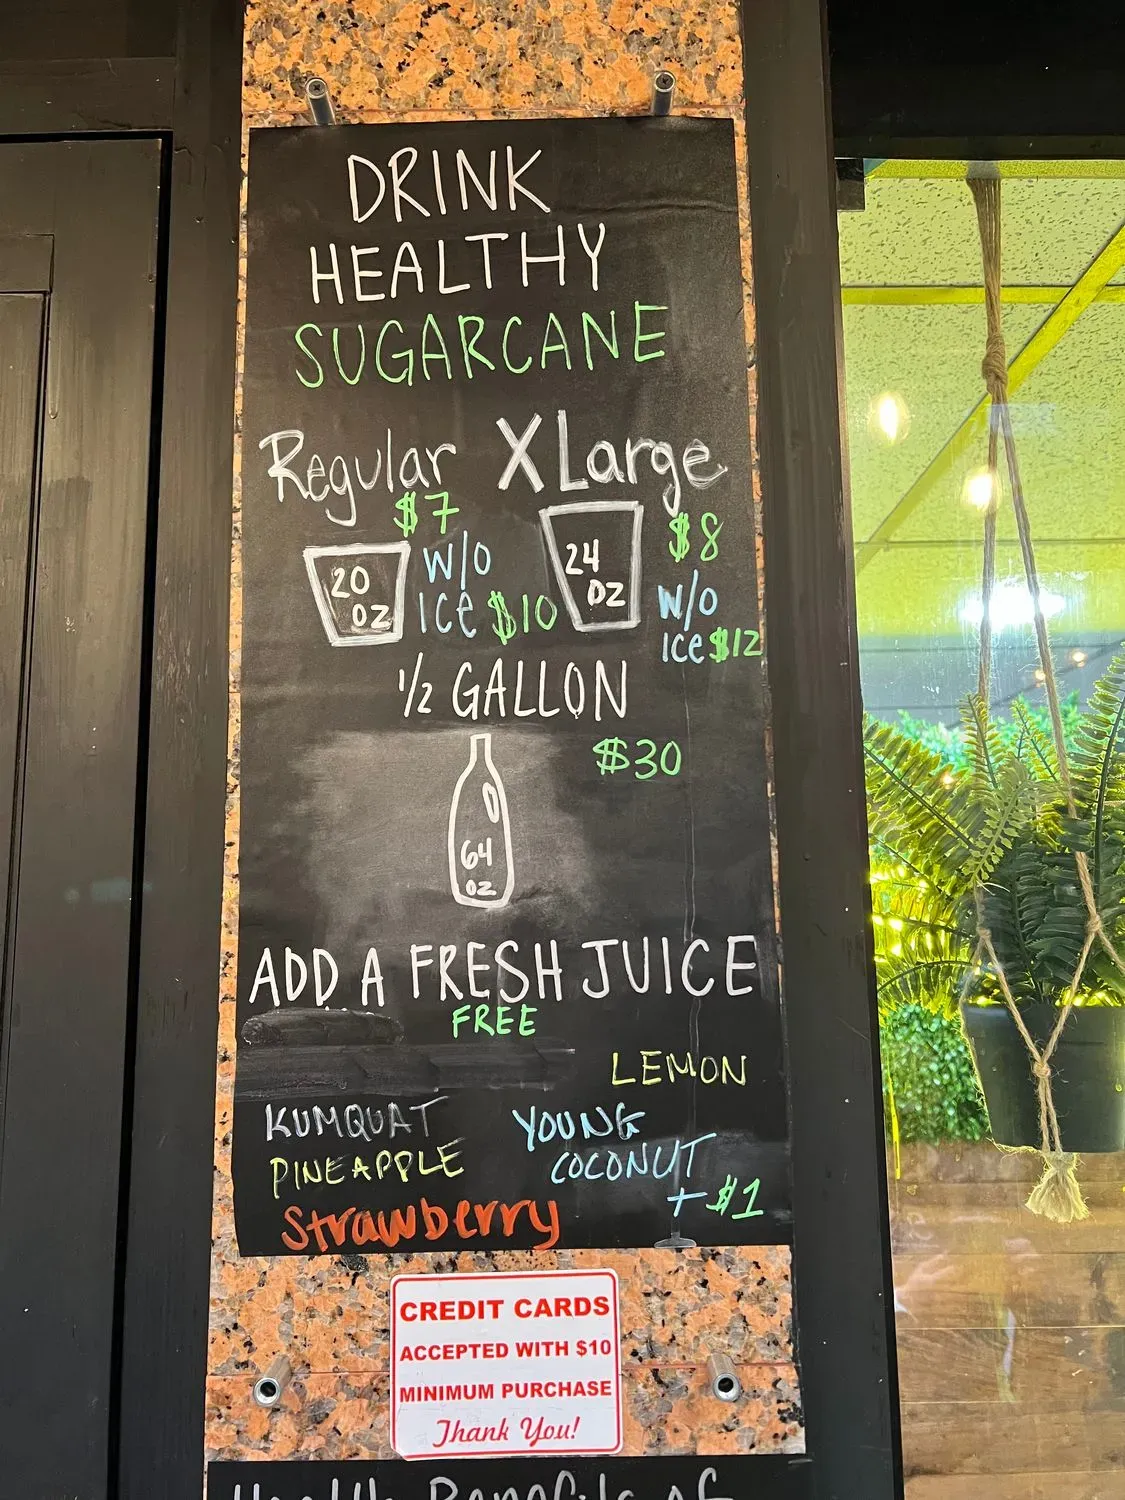 DRINK
HEALTHY
SUGARCANE
Regular XLarge
$7 $8
20 OZ
W/O
ICE $10
24 OZ
W/O
ICE $12
1/2 GALLON
$30
64 OZ
ADD A FRESH JUICE
FREE
LEMON
KUMQUAT
PINEAPPLE
Strawberry
YOUNG
COCONUT
+ $1
CREDIT CARDS
ACCEPTED WITH $10
MINIMUM PURCHASE
Thank You!
Health Benefits of